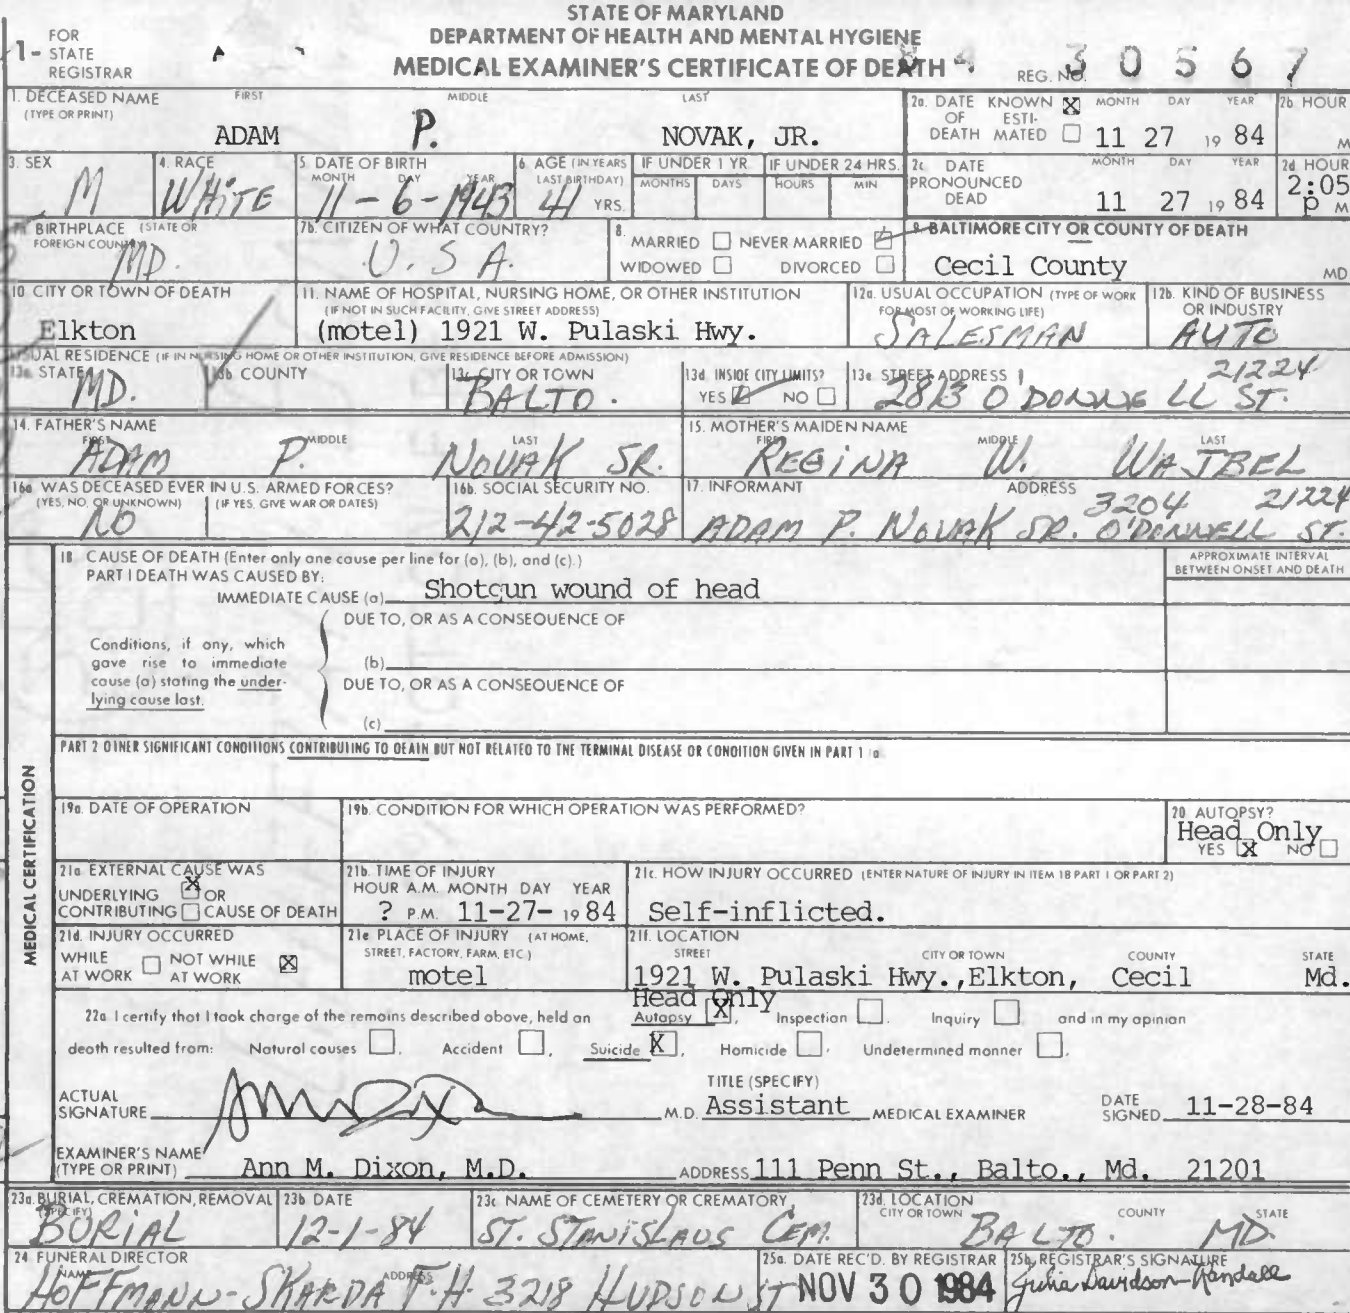 STATE OF MARYLAND
DEPARTMENT OF HEALTH AND MENTAL HYGIENE
MEDICAL EXAMINER'S CERTIFICATE OF DEATH
1- FOR STATE REGISTRAR
REG. NO. 84 30567
1. DECEASED NAME (TYPE OR PRINT) FIRST MIDDLE LAST
ADAM P. NOVAK, JR.
2a. DATE OF DEATH KNOWN X ESTIMATED MONTH DAY YEAR 11 27 19 84
2b HOUR M
3. SEX M
4. RACE WHITE
5. DATE OF BIRTH MONTH DAY YEAR 11-6-1943
6. AGE (IN YEARS LAST BIRTHDAY) 41 YRS.
IF UNDER 1 YR. MONTHS DAYS
IF UNDER 24 HRS. HOURS MIN
2c DATE PRONOUNCED DEAD MONTH DAY YEAR 11 27 19 84
2d HOUR 2:05 P M
BIRTHPLACE (STATE OR FOREIGN COUNTRY) MD.
7b. CITIZEN OF WHAT COUNTRY? U.S A.
8. MARRIED NEVER MARRIED WIDOWED DIVORCED
9. BALTIMORE CITY OR COUNTY OF DEATH
Cecil County MD
10 CITY OR TOWN OF DEATH Elkton
11. NAME OF HOSPITAL, NURSING HOME, OR OTHER INSTITUTION (IF NOT IN SUCH FACILITY, GIVE STREET ADDRESS)
(motel) 1921 W. Pulaski Hwy.
12a. USUAL OCCUPATION (TYPE OF WORK FOR MOST OF WORKING LIFE) SALESMAN
12b. KIND OF BUSINESS OR INDUSTRY AUTO
USUAL RESIDENCE (IF IN NURSING HOME OR OTHER INSTITUTION, GIVE RESIDENCE BEFORE ADMISSION)
13a STATE MD.
13b COUNTY
13c CITY OR TOWN BALTO.
13d. INSIDE CITY LIMITS? YES NO
13e STREET ADDRESS 2813 O'DONNELL ST. 21224
14. FATHER'S NAME FIRST MIDDLE LAST
ADAM P. NOVAK SR.
15. MOTHER'S MAIDEN NAME FIRST MIDDLE LAST
REGINA W. WAJBEL
16a WAS DECEASED EVER IN U.S. ARMED FORCES? (YES, NO, OR UNKNOWN) (IF YES, GIVE WAR OR DATES)
NO
16b. SOCIAL SECURITY NO. 212-42-5028
17. INFORMANT ADDRESS
ADAM P. NOVAK SR. 3204 O'DONNELL ST. 21224
MEDICAL CERTIFICATION
18 CAUSE OF DEATH (Enter only one cause per line for (a), (b), and (c).)
APPROXIMATE INTERVAL BETWEEN ONSET AND DEATH
PART I DEATH WAS CAUSED BY:
IMMEDIATE CAUSE (a) Shotgun wound of head
DUE TO, OR AS A CONSEQUENCE OF
Conditions, if any, which gave rise to immediate cause (a) stating the underlying cause last.
(b)
DUE TO, OR AS A CONSEQUENCE OF
(c)
PART 2 OTHER SIGNIFICANT CONDITIONS CONTRIBUTING TO DEATH BUT NOT RELATED TO THE TERMINAL DISEASE OR CONDITION GIVEN IN PART 1 (a)
19a. DATE OF OPERATION
19b. CONDITION FOR WHICH OPERATION WAS PERFORMED?
20 AUTOPSY? Head Only
YES X NO
21a EXTERNAL CAUSE WAS
UNDERLYING X OR
CONTRIBUTING CAUSE OF DEATH
21b. TIME OF INJURY
HOUR A.M. MONTH DAY YEAR
? P.M. 11-27- 19 84
21c. HOW INJURY OCCURRED (ENTER NATURE OF INJURY IN ITEM 18 PART 1 OR PART 2)
Self-inflicted.
21d. INJURY OCCURRED
WHILE AT WORK NOT WHILE AT WORK X
21e PLACE OF INJURY (AT HOME, STREET, FACTORY, FARM, ETC.)
motel
21f. LOCATION STREET CITY OR TOWN COUNTY STATE
1921 W. Pulaski Hwy.,Elkton, Cecil Md.
Head Only
22a I certify that I took charge of the remains described above, held an Autopsy X, Inspection , Inquiry and in my opinion
death resulted from: Natural causes , Accident , Suicide X, Homicide , Undetermined manner .
ACTUAL SIGNATURE M.D.
TITLE (SPECIFY) Assistant MEDICAL EXAMINER
DATE SIGNED 11-28-84
EXAMINER'S NAME (TYPE OR PRINT) Ann M. Dixon, M.D.
ADDRESS 111 Penn St., Balto., Md. 21201
23a. BURIAL, CREMATION, REMOVAL (SPECIFY) BURIAL
23b DATE 12-1-84
23c NAME OF CEMETERY OR CREMATORY ST. STANISLAUS CEM.
23d. LOCATION CITY OR TOWN COUNTY STATE
BALTO. MD.
24 FUNERAL DIRECTOR NAME ADDRESS
HOFFMANN-SKARDA F.H. 3218 HUDSON ST
25a. DATE REC'D. BY REGISTRAR NOV 30 1984
25b. REGISTRAR'S SIGNATURE Julia Davidson-Randall